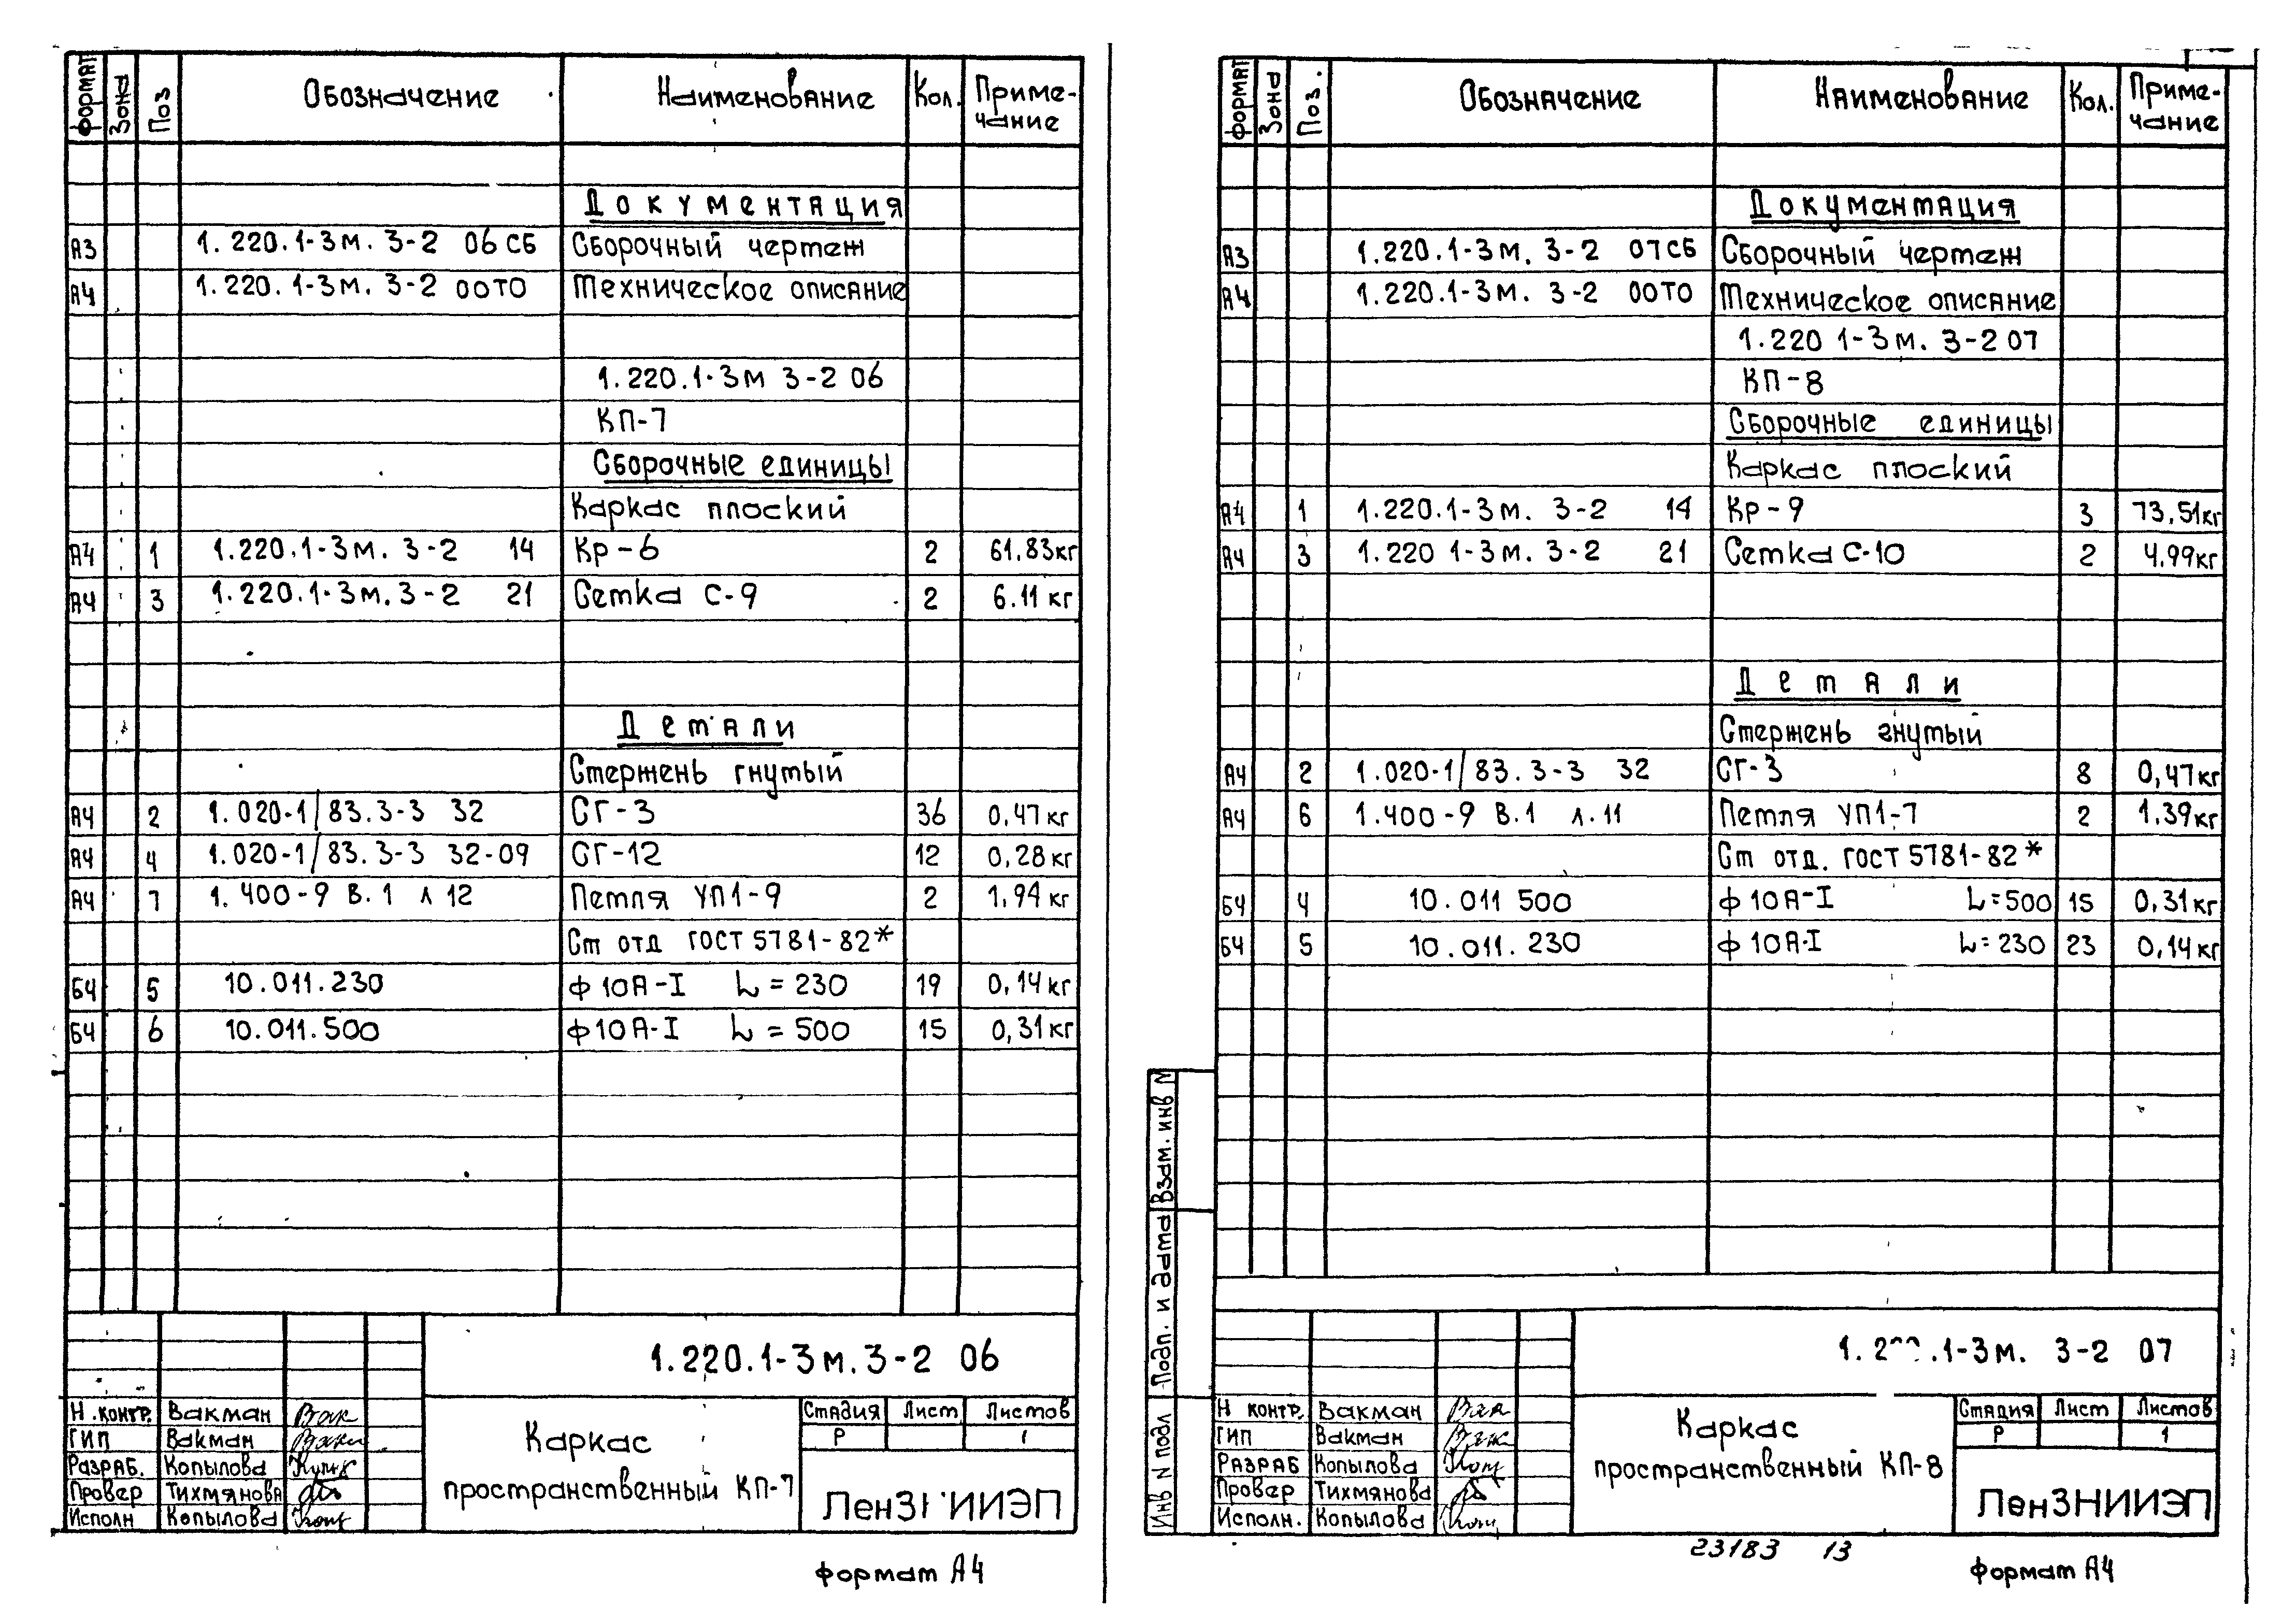 Формат Зона Поз Обозначение Наименование Кол. Приме-
чание
Документация
А3 1.220.1-3м. 3-2 06СБ Сборочный чертеж
А4 1.220.1-3м. 3-2 00ТО Техническое описание
1.220.1-3м 3-2 06
КП-7
Сборочные единицы
Каркас плоский
А4 1 1.220.1-3м. 3-2 14 Кр-6 2 61.83кг
А4 3 1.220.1-3м. 3-2 21 Сетка С-9 2 6.11кг
Детали
Стержень гнутый
А4 2 1.020-1/83.3-3 32 СГ-3 36 0,47кг
А4 4 1.020-1/83.3-3 32-09 СГ-12 12 0,28кг
А4 7 1.400-9 В.1 л 12 Петля УП1-9 2 1,94кг
Ст отд ГОСТ 5781-82*
БЧ 5 10.011.230 ф10А-I L=230 19 0,14кг
БЧ 6 10.011.500 ф10А-I L=500 15 0,31кг
1.220.1-3м.3-2 06
Н.контр. Вакман
ГИП Вакман
Разраб. Копылова
Провер Тихмянова
Исполн Копылова
Каркас
пространственный КП-7
Стадия Лист Листов
Р 1
ЛенЗНИИЭП
формат А4
Формат Зона Поз. Обозначение Наименование Кол. Приме-
чание
Документация
А3 1.220.1-3м. 3-2 07СБ Сборочный чертеж
А4 1.220.1-3м. 3-2 00ТО Техническое описание
1.220 1-3м. 3-2 07
КП-8
Сборочные единицы
Каркас плоский
А4 1 1.220.1-3м. 3-2 14 Кр-9 3 73.51кг
А4 3 1.220 1-3м. 3-2 21 Сетка С-10 2 4.99кг
Детали
Стержень гнутый
А4 2 1.020-1/83.3-3 32 СГ-3 8 0,47кг
А4 6 1.400-9 В.1 л.11 Петля УП1-7 2 1.39кг
Ст отд. ГОСТ 5781-82*
БЧ 4 10.011 500 ф10А-I L=500 15 0,31кг
БЧ 5 10.011.230 ф10А-I L=230 23 0,14кг
Инв N подл Подп. и дата Взам. инв N
1.2 .1-3м. 3-2 07
Н контр. Вакман
ГИП Вакман
Разраб Копылова
Провер Тихмянова
Исполн. Копылова
Каркас
пространственный КП-8
Стадия Лист Листов
Р 1
ЛенЗНИИЭП
23183 13
формат А4